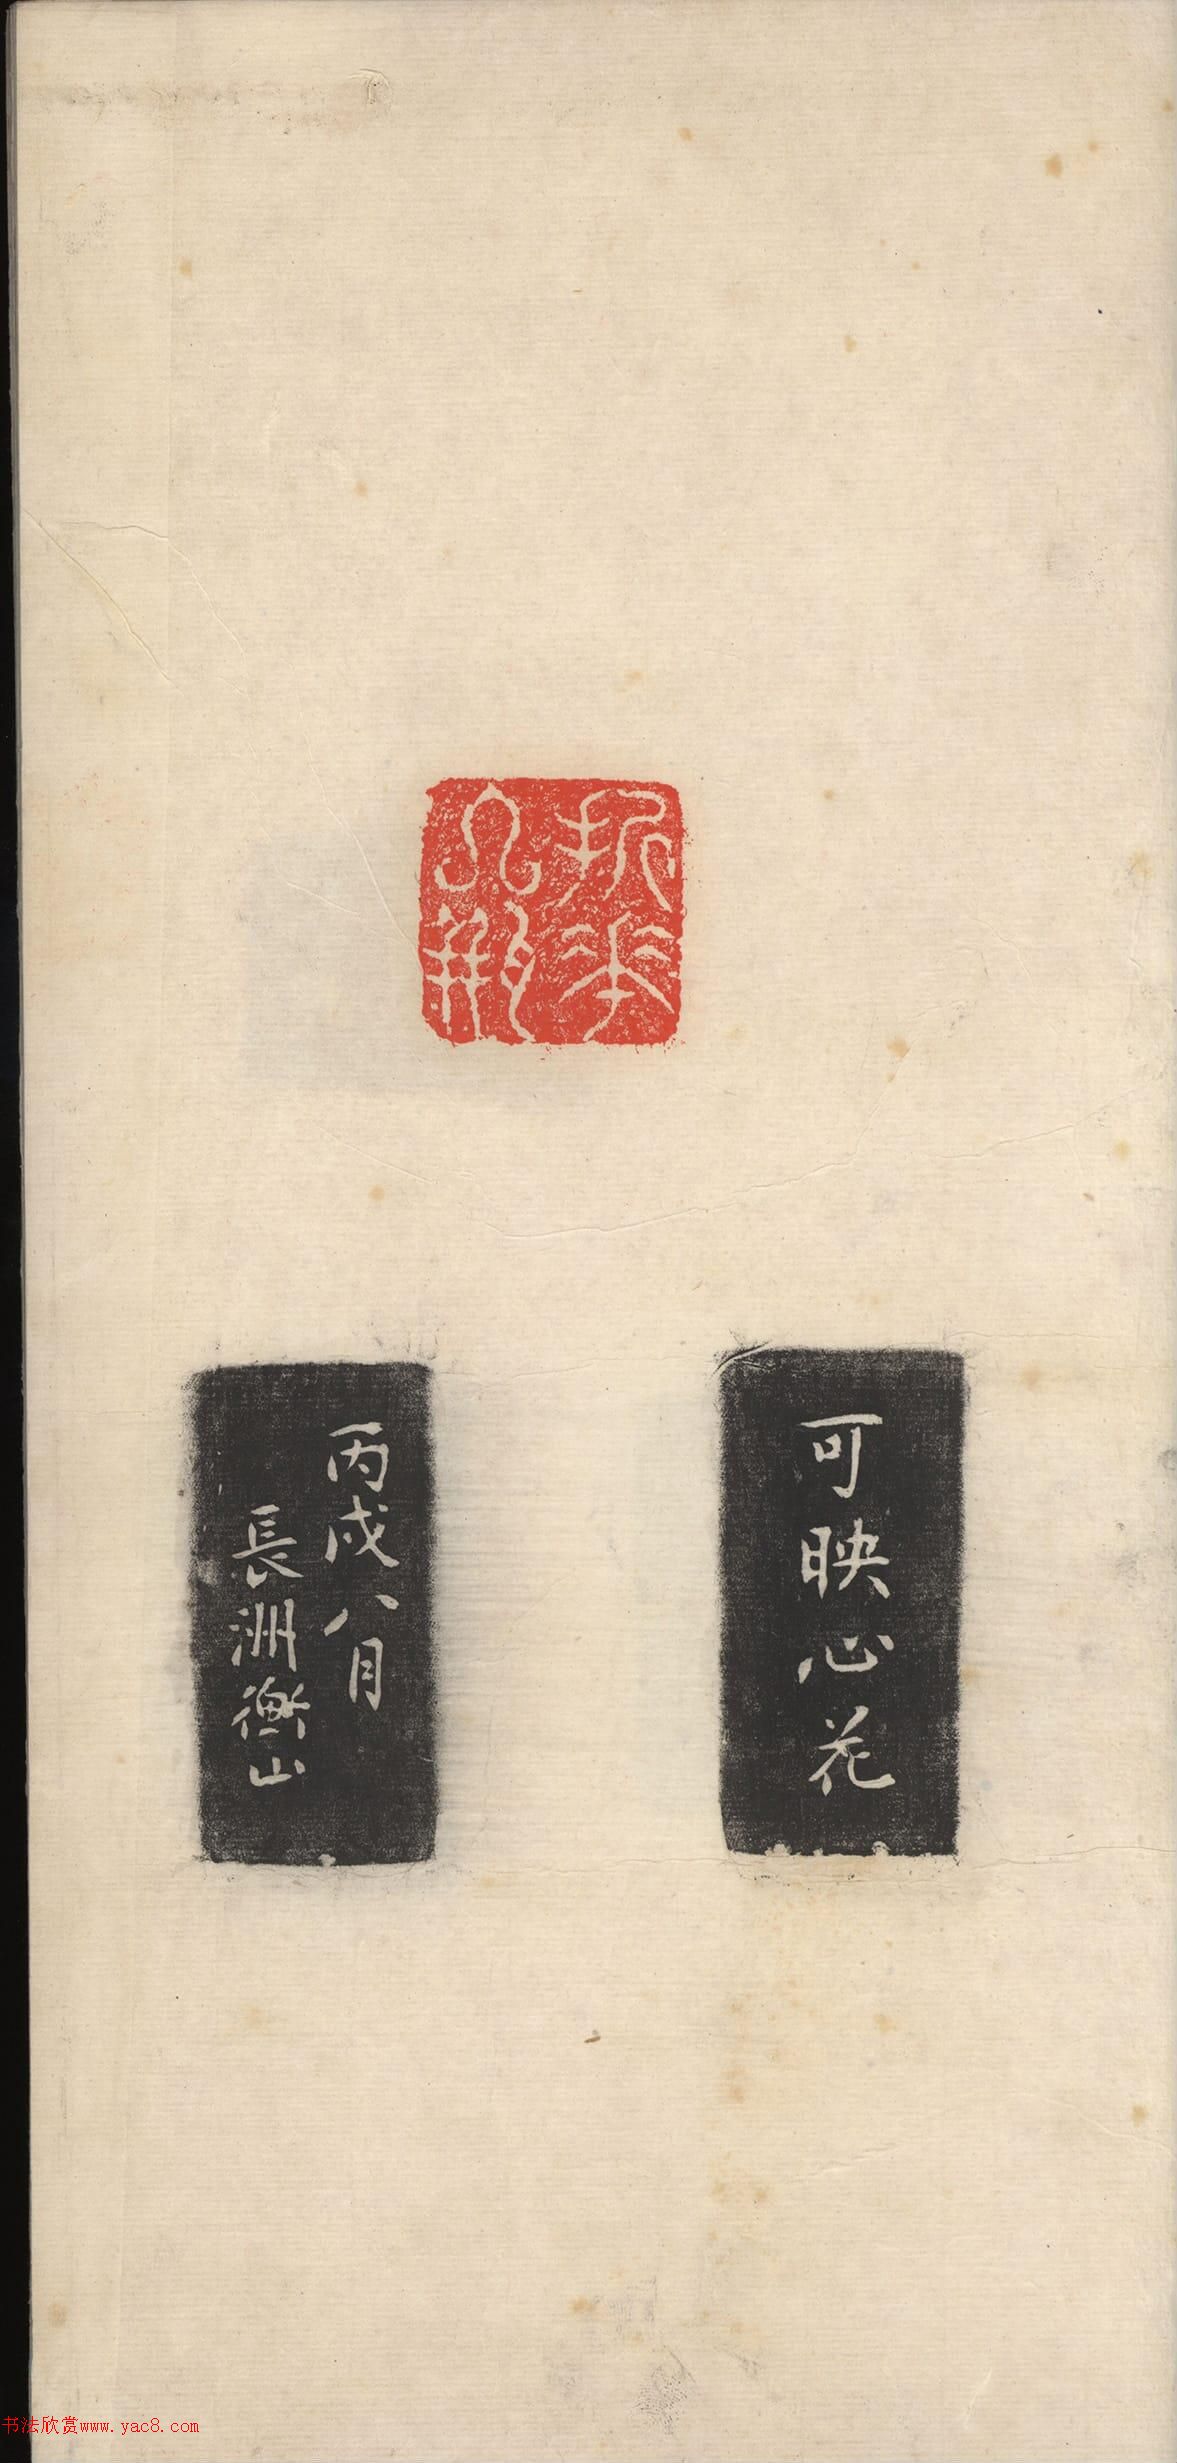 可映心花
丙戌八月
長洲衡山
书法欣赏www.yac8.com